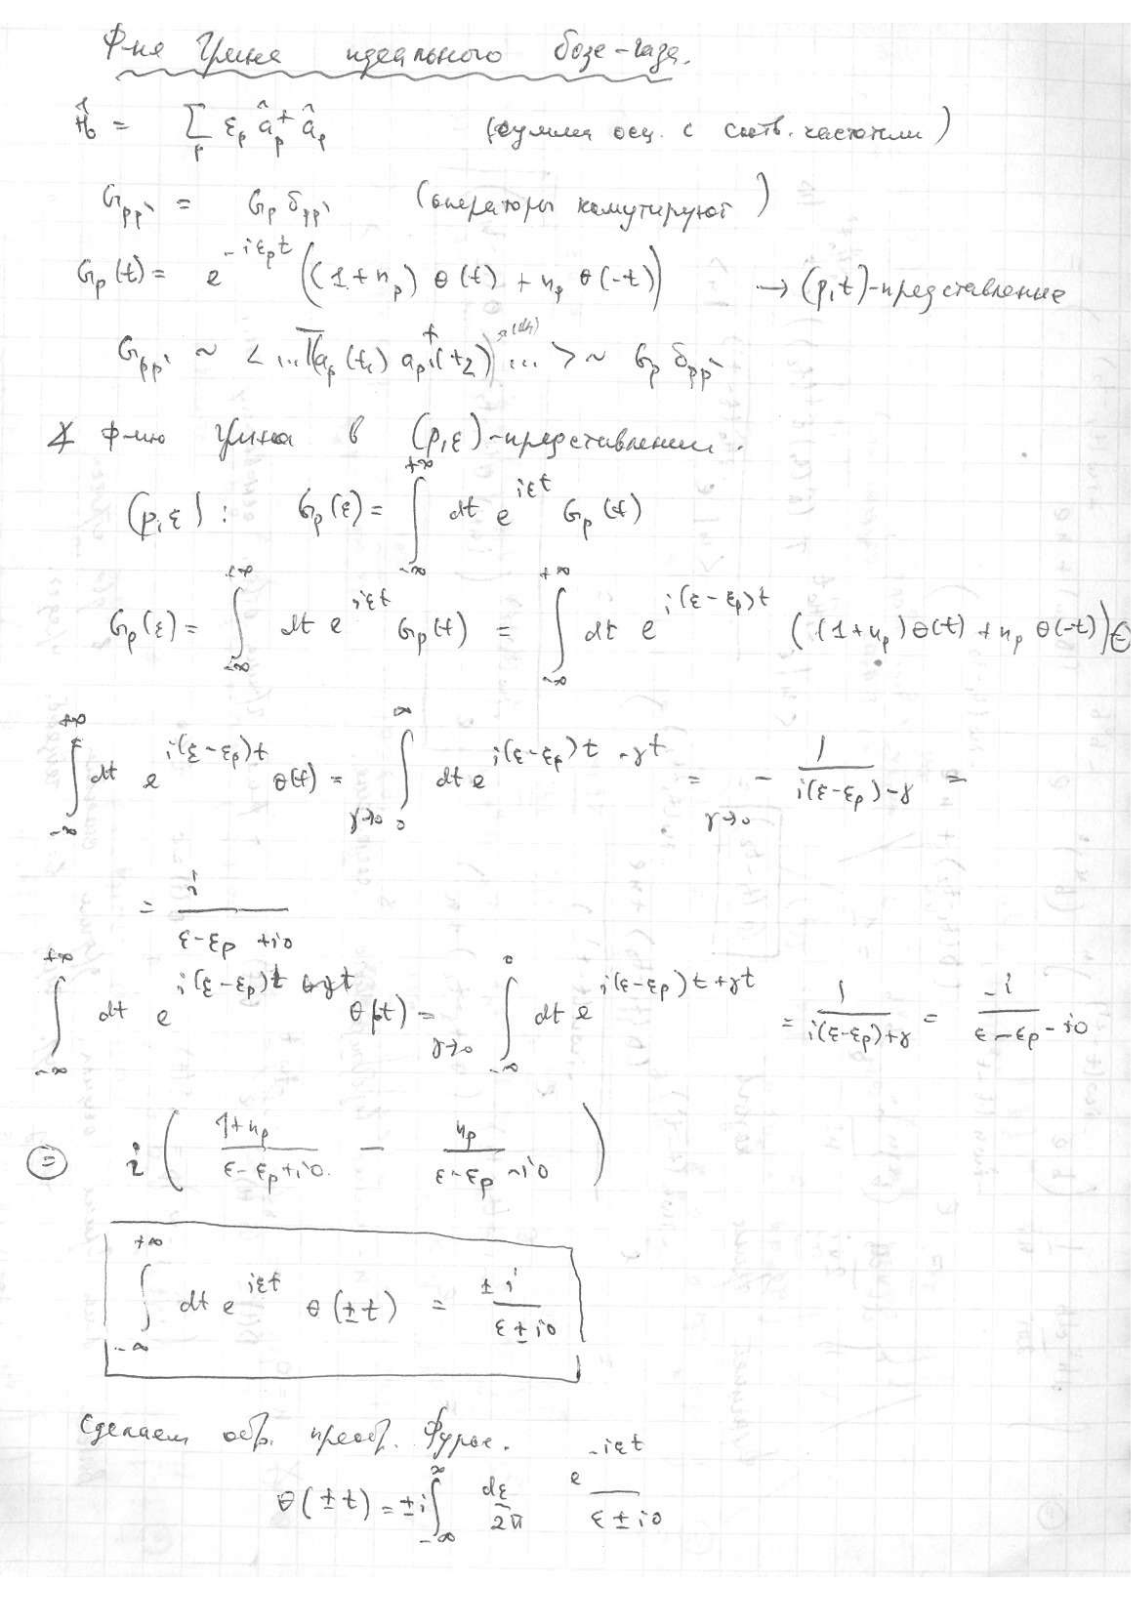 Ф-ия Грина идеального бозе-газа.
Ĥ₀ = ∑_p ε_p â_p⁺ â_p (сумма осц. с соотв. частотами)
G_pp` = G_p δ_pp` (операторы комутируют)
G_p(t) = e^{-iε_p t} ((1+n_p) θ(t) + n_p θ(-t)) → (p,t)-представление
G_pp` ~ <...T(a_p(t₁) a_p`⁺(t₂)) ... > ~ G_p δ_pp`
ф-ию Грина в (p,ε)-представлении.
(p,ε): G_p(ε) = ∫_{-∞}^{+∞} dt e^{iεt} G_p(t)
G_p(ε) = ∫_{-∞}^{+∞} dt e^{iεt} G_p(t) = ∫_{-∞}^{+∞} dt e^{i(ε-ε_p)t} ((1+n_p)θ(t) + n_p θ(-t)) ⊜
∫_{-∞}^{+∞} dt e^{i(ε-ε_p)t} θ(t) =_{γ→0} ∫_0^∞ dt e^{i(ε-ε_p)t - γt} =_{γ→0} - 1/(i(ε-ε_p)-γ) =
= i/(ε-ε_p +i0)
∫_{-∞}^{+∞} dt e^{i(ε-ε_p)t} θ(-t) =_{γ→0} ∫_{-∞}^0 dt e^{i(ε-ε_p)t+γt} = 1/(i(ε-ε_p)+γ) = -i/(ε-ε_p-i0)
⊜ i ( (1+n_p)/(ε-ε_p+i0) - n_p/(ε-ε_p-i0) )
∫_{-∞}^{+∞} dt e^{iεt} θ(±t) = ±i/(ε±i0)
Сделаем обр. преобр. Фурье.
θ(±t) = ±i ∫_{-∞}^∞ dε/2π e^{-iεt}/(ε±i0)